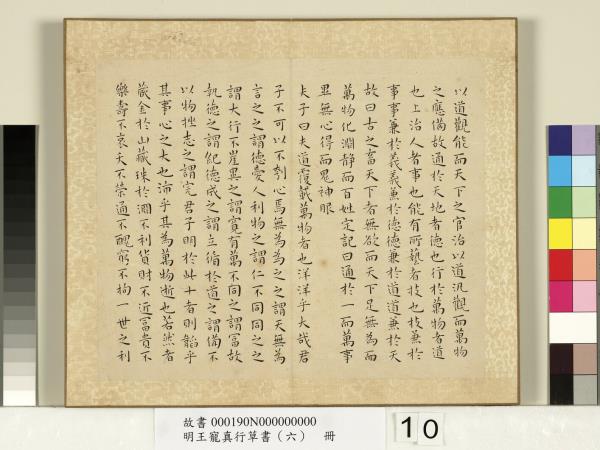 以道觀能而天下之官治以道汎觀而萬物
之應備故通於天地者德也行於萬物者道
也上治人者事也能有所藝者技也技兼於
事事兼於義義兼於德德兼於道道兼於天
故曰古之畜天下者無欲而天下足無為而
萬物化淵靜而百姓定記曰通於一而萬事
畢無心得而鬼神服
夫子曰夫道覆載萬物者也洋洋乎大哉君
子不可以不刳心焉無為為之之謂天無為
言之之謂德愛人利物之謂仁不同同之之
謂大行不崖異之謂寬有萬不同之謂富故
執德之謂紀德成之謂立循於道之謂備不
以物挫志之謂完君子明於此十者則韜乎
其事心之大也沛乎其為萬物逝也若然者
藏金於山藏珠於淵不利貨財不近富貴不
樂壽不哀夭不榮通不醜窮不拘一世之利
故書 000190N000000000
明王寵真行草書（六） 冊
10